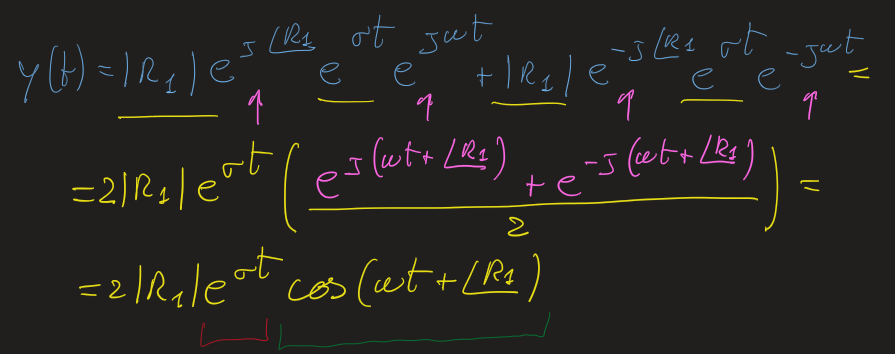 y(t) = |R₁| e^{j∠R₁} e^{σt} e^{jωt} + |R₁| e^{-j∠R₁} e^{σt} e^{-jωt} =
= 2|R₁| e^{σt} ( (e^{j(ωt+∠R₁)} + e^{-j(ωt+∠R₁)}) / 2 ) =
= 2|R₁| e^{σt} cos(ωt + ∠R₁)